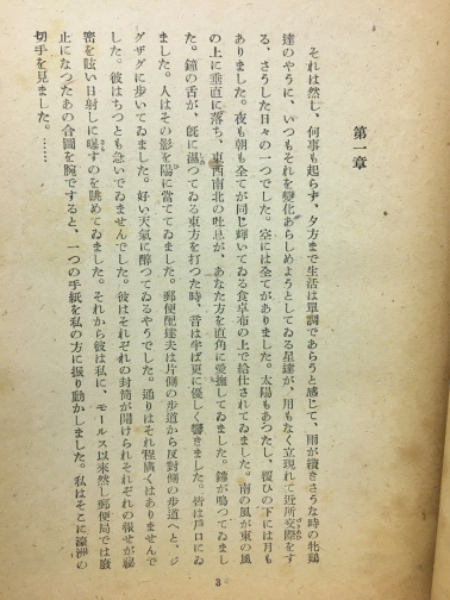 第一章
それは然し、何事も起らず、夕方まで生活は單調であらうと感じて、雨が續きさうな時の牝鷄
達のやうに、いつもそれを變化あらしめようとしてゐる星達が、用もなく立現れて近所交際をす
る、さうした日々の一つでした。空には全てがありました。太陽もあつたし、覆ひの下には月も
ありました。夜も朝も全てが同じ輝いてゐる食卓布の上で給仕されてゐました。南の風が東の風
の上に垂直に落ち、東西南北の吐息が、あなた方を直角に愛撫してゐました。鐘が鳴つてゐまし
た。鐘の舌が、旣に濕つてゐる東方を打つた時、音は半ば更に優しく響きました。皆は戸口にゐ
ました。人はその影を陽に當ててゐました。郵便配達夫は片側の歩道から反對側の歩道へと、ジ
グザグに歩いてゐました。好い天氣に醉つてゐるやうでした。通りはそれ程廣くはありませんで
した。彼はちつとも急いでゐませんでした。彼はそれぞれの封筒が開けられそれぞれの報せが祕
密を眩い日射しに曝すのを眺めてゐました。それから彼は私に、モールス以來然し郵便局では廢
止になつたあの合圖を腕ですると、一つの手紙を私の方に振り動かしました。私はそこに濠洲の
切手を見ました。……
3